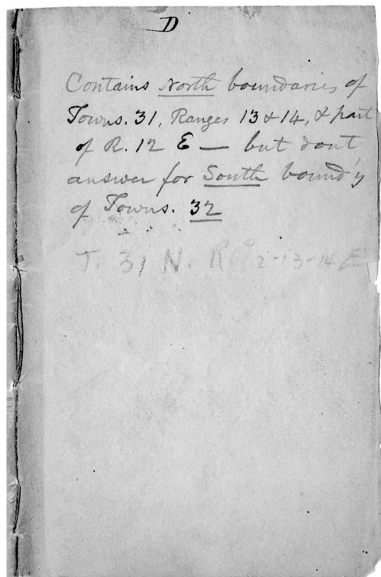 D
Contains North boundaries of
Towns. 31, Ranges 13 & 14, & part
of R. 12 E — but dont
answer for South bound'y
of Towns. 32
T. 31 N. R. 12-13-14 E